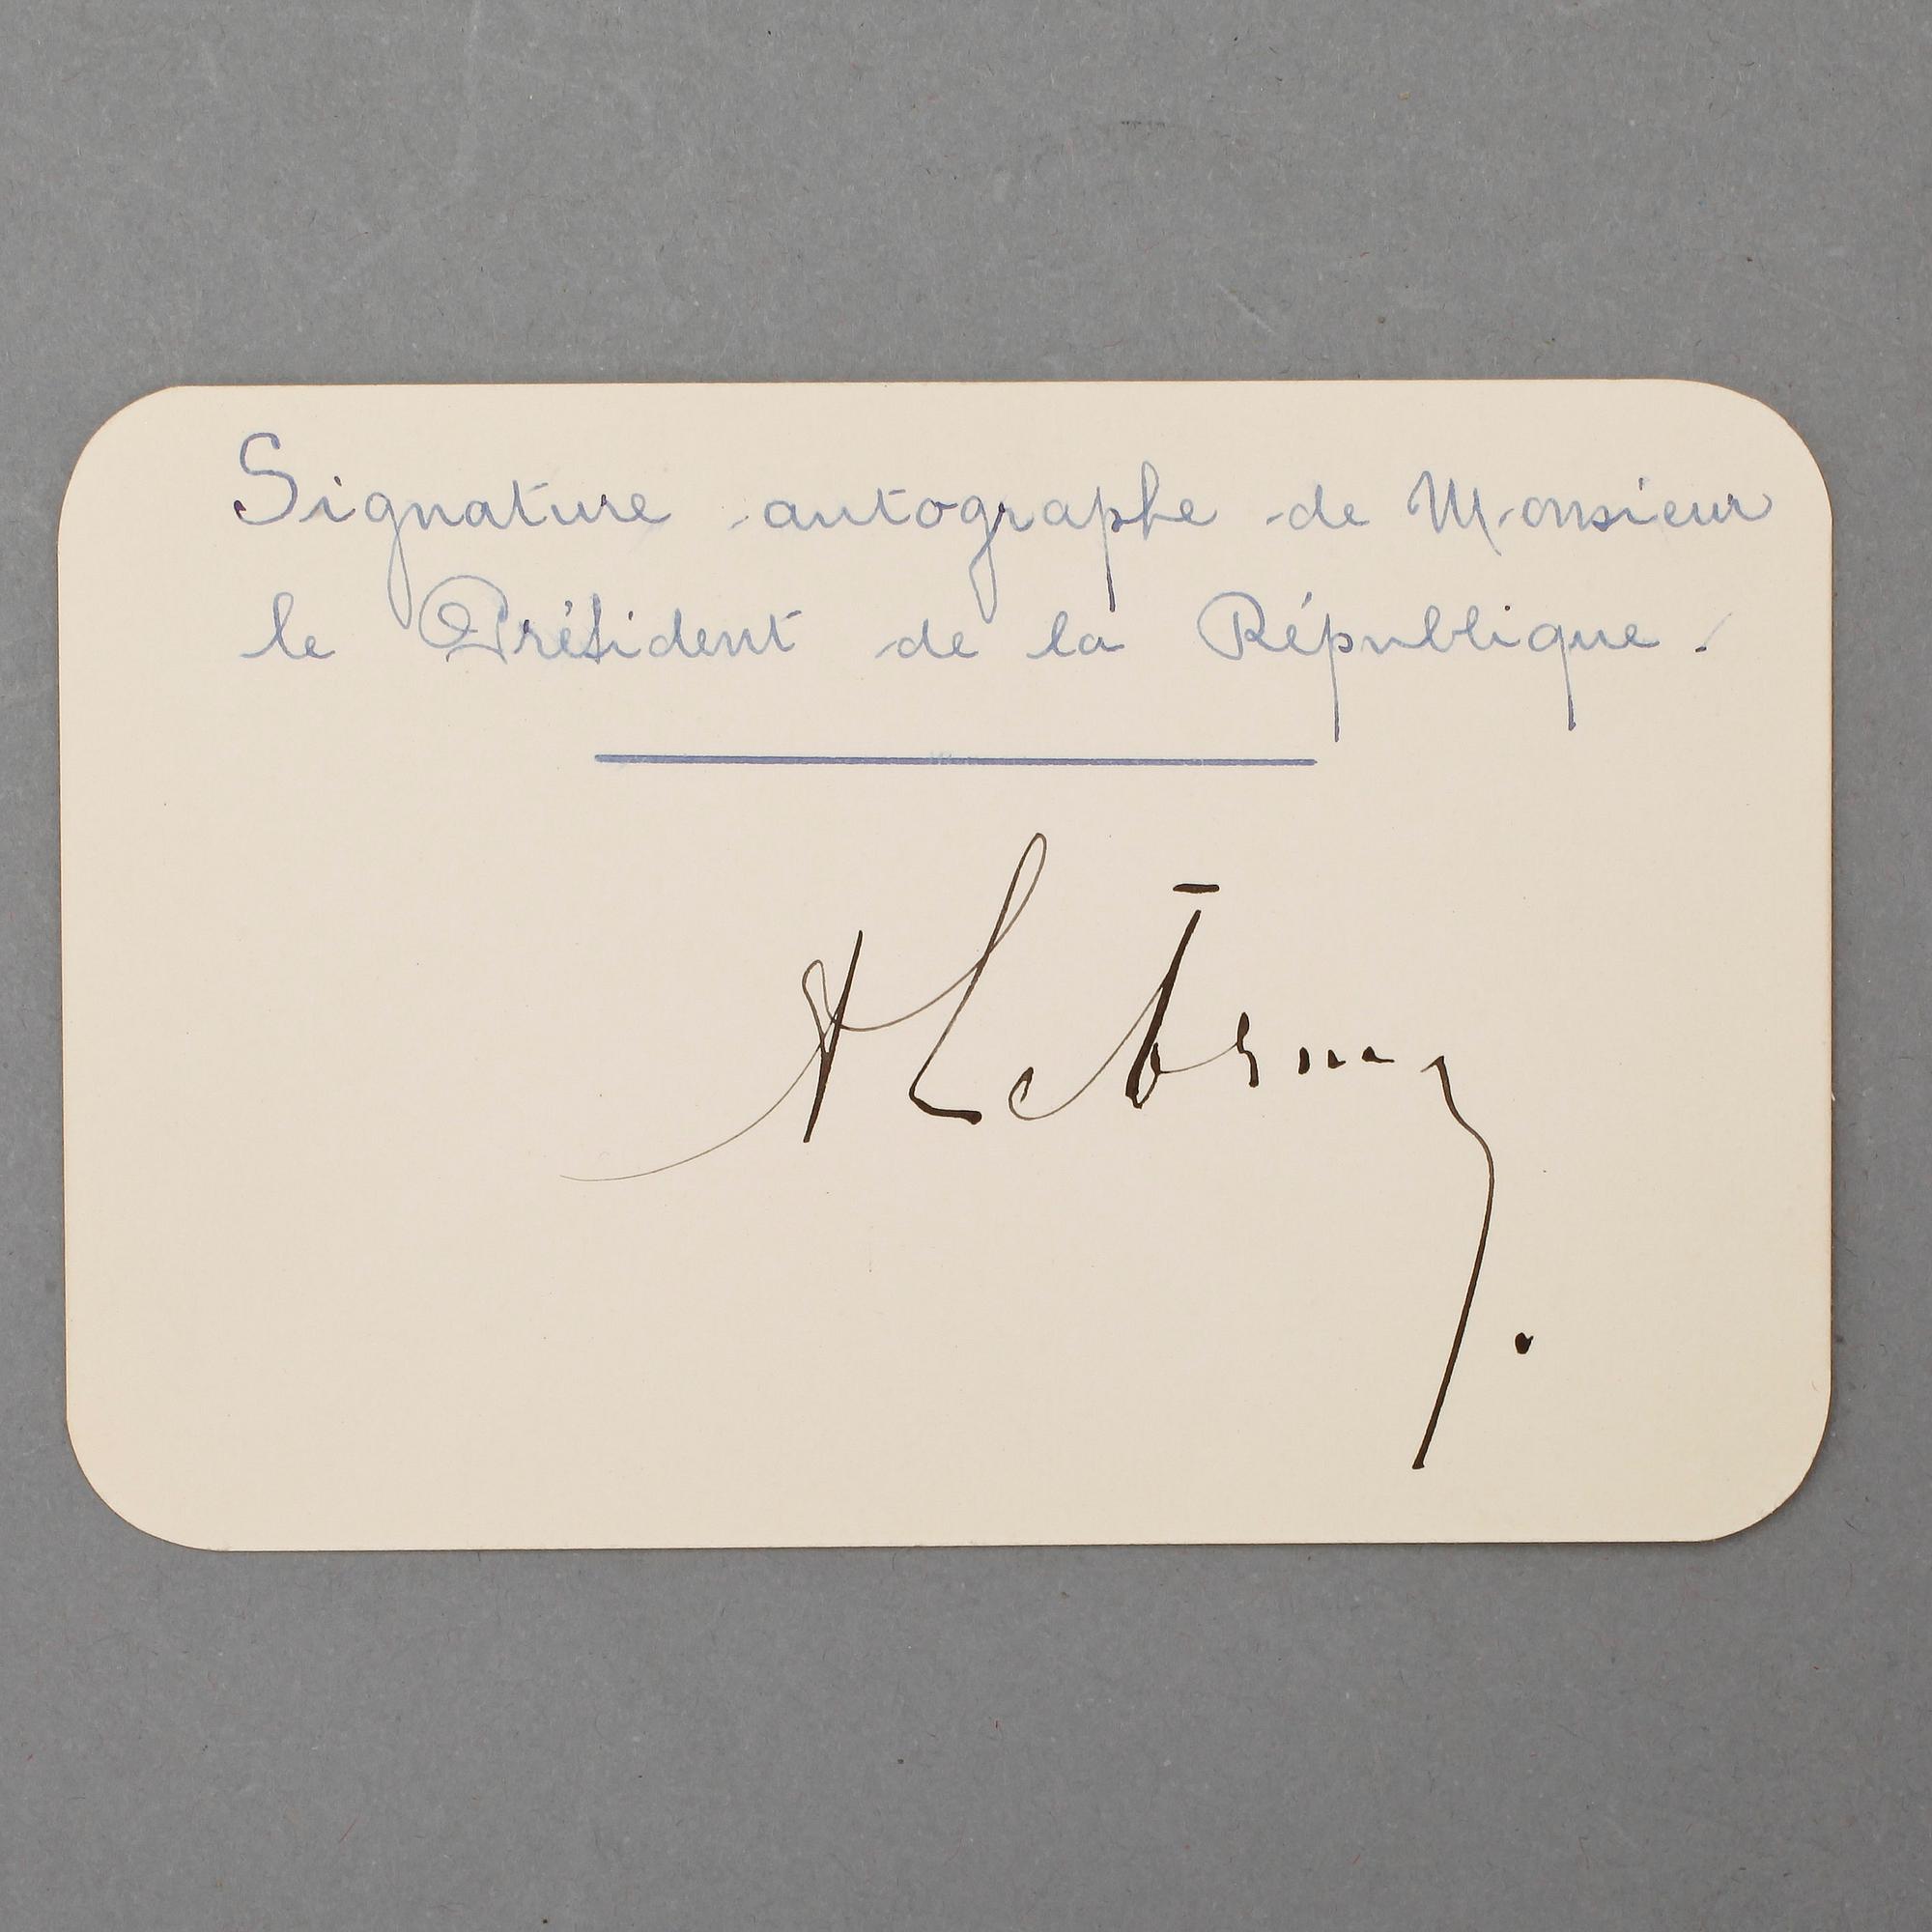 Signature autographe de Monsieur
le Président de la République.
A Lebrun